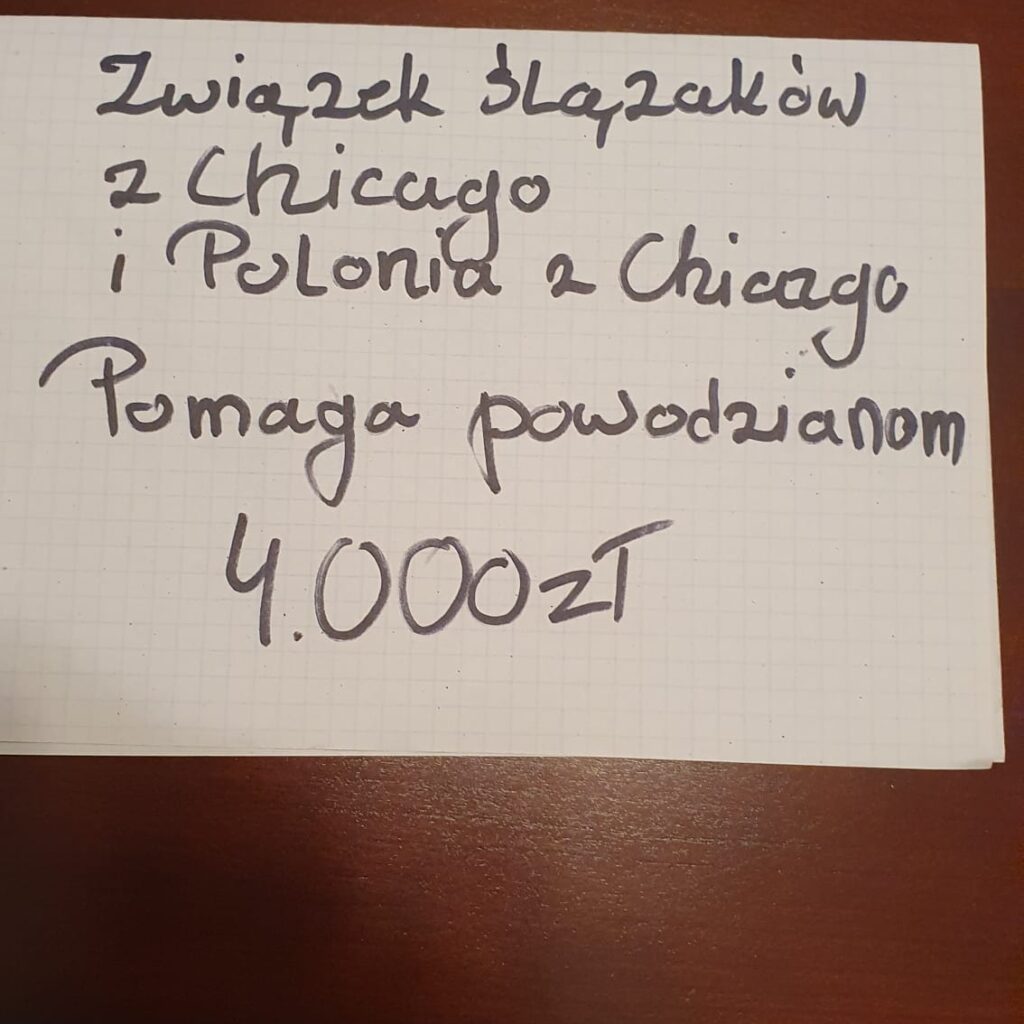 Związek ślązaków
z Chicago
i Polonia z Chicago
Pomaga powodzianom
4.000zł